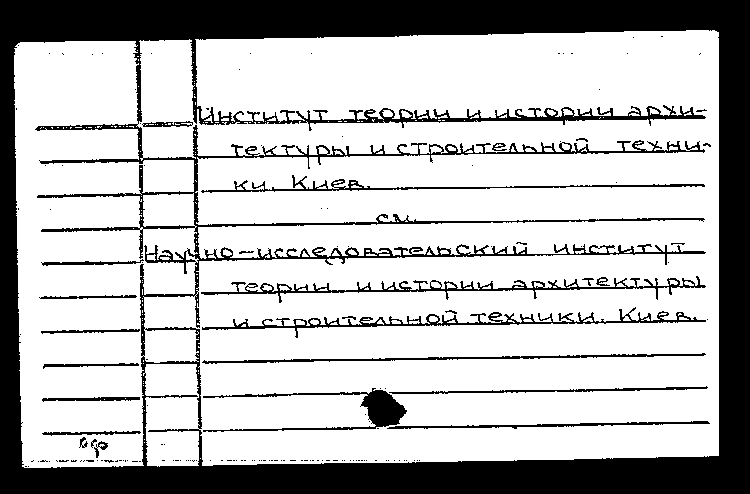 Институт теории и истории архи-
тектуры и строительной техни-
ки. Киев.
см.
Научно-исследовательский институт
теории и истории архитектуры
и строительной техники. Киев.